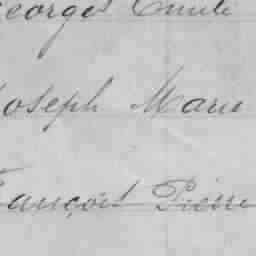 eorges Emile
oseph Marie
ançois Pierre